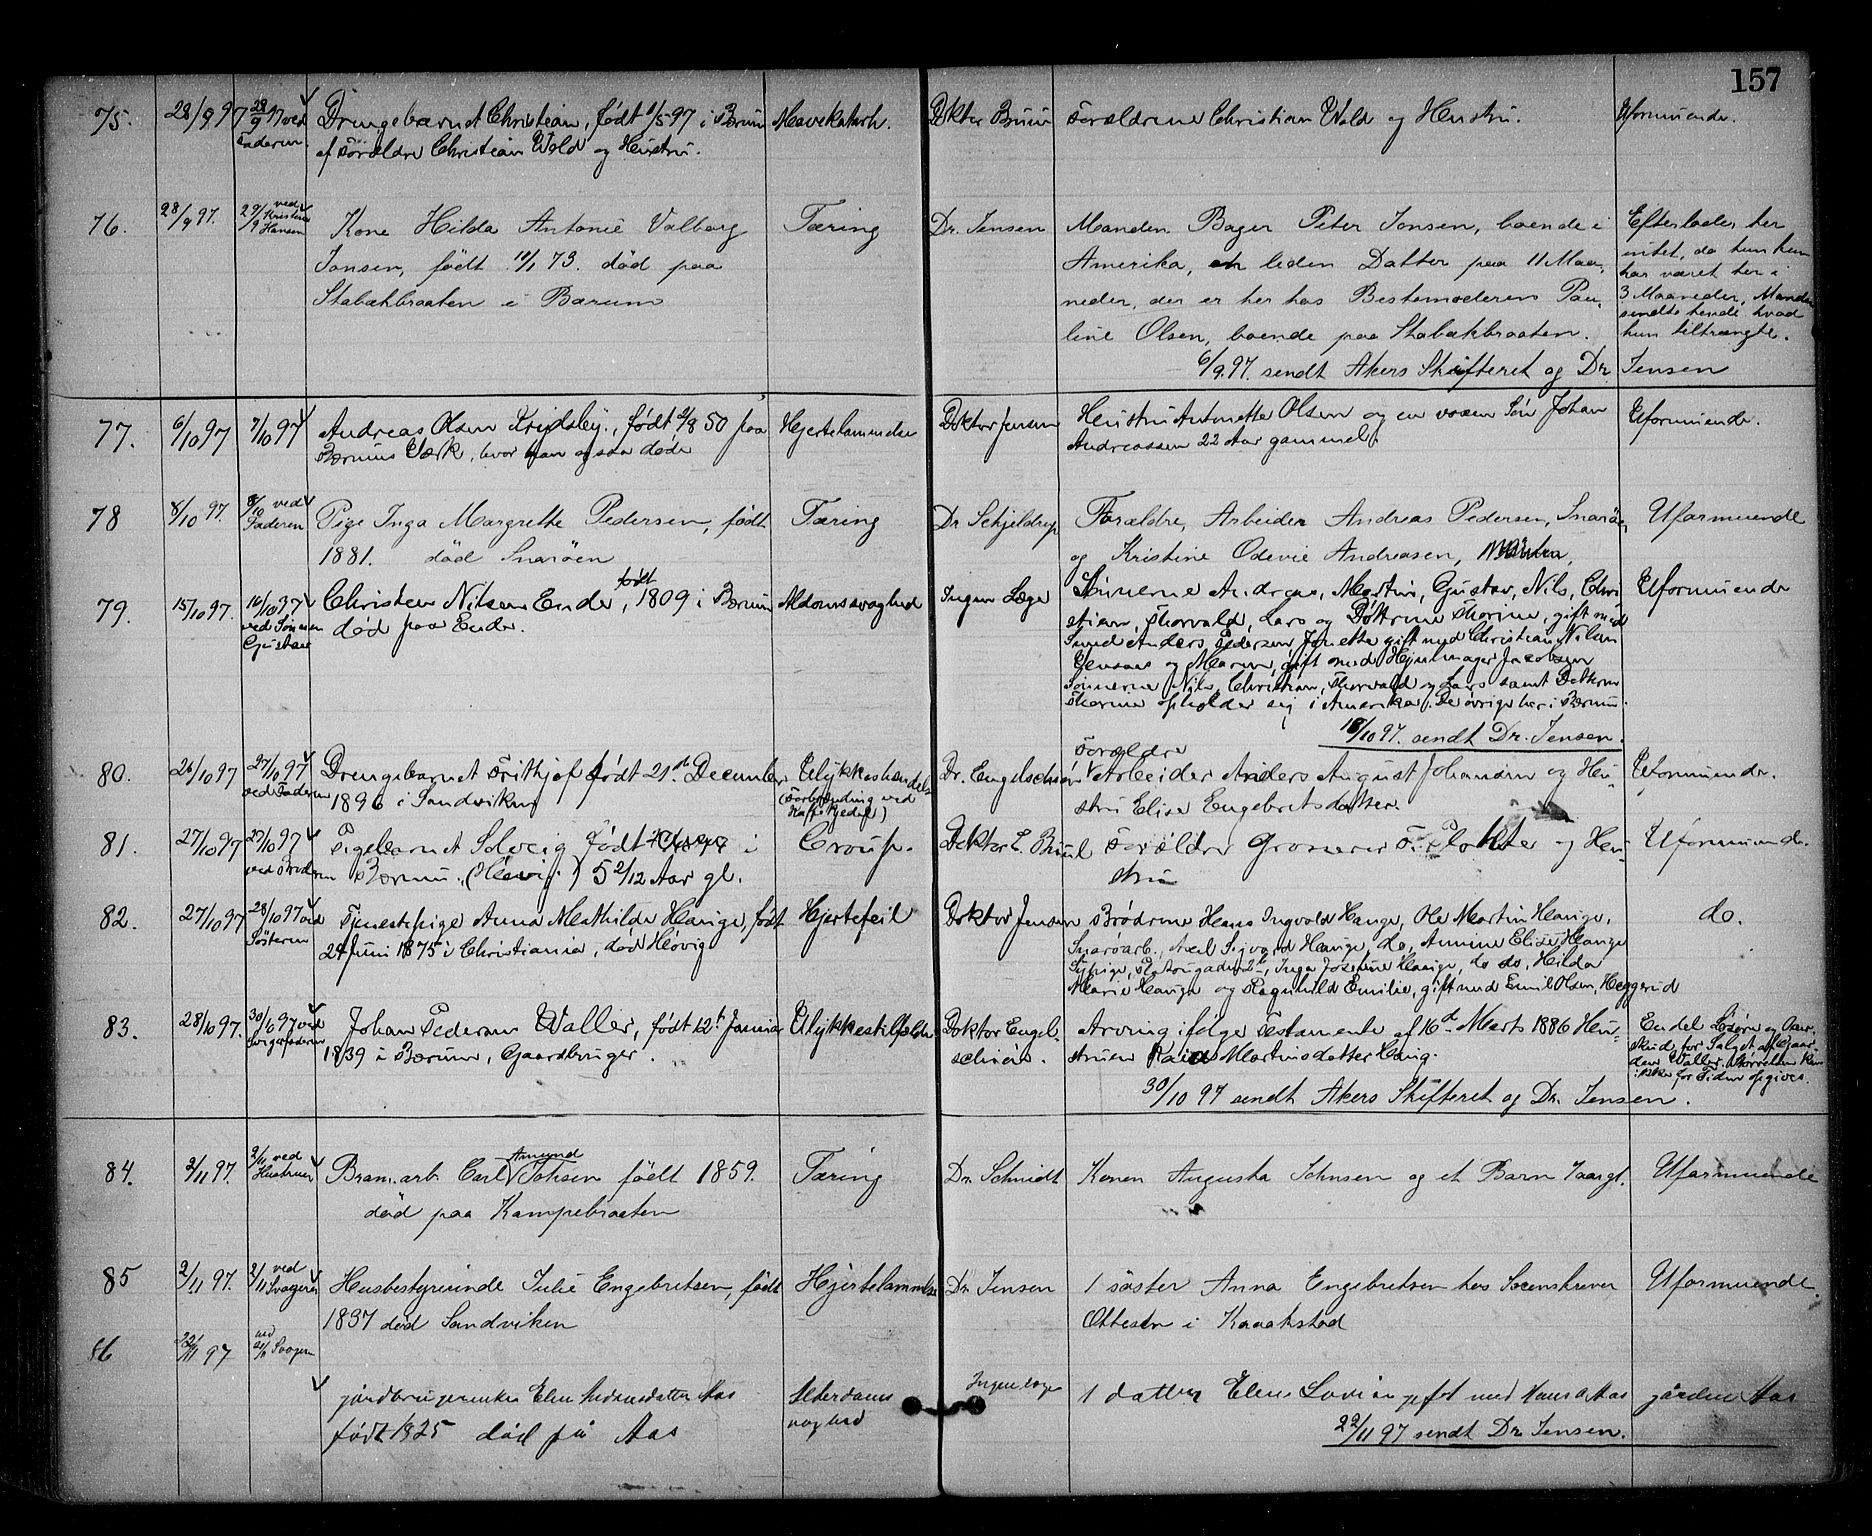 157
75. 28/9 97 28/9 97 ved Faderen Drengebarnet Christian, født 1/5 97 i Bærum Mavekatarh. Doktor Bruun Forældrene Christian Wold og Hustru. Uformuende.
af Forældre Christian Wold og Hustru.
76. 28/9 97. 29/9 ved Kristine Hansen Kone Hilda Antonie Valborg Tæring Dr. Jensen Manden Bager Peter Jonsen, boende i Efterlader her
Jonsen, født 11/1 73. død paa Amerika, en liden Datter paa 11 Maa- intet, da hun kun
Stabækbraaten i Bærum neder, der er her hos Bestemoderen Pau- har været her i
line Olsen, boende paa Stabækbraaten. 3 Maaneder, Manden
sendte hende hvad
hun tiltrængte.
6/9. 97. sendt Akers Skifteret og Dr. Jensen
77. 6/10 97 7/10 97 Andreas Olsen Krydsby, født 2/8 50 paa Hjertelammelse Doktor Jensen Hustru Antonette Olsen og en voxen Søn Johan Uformuende.
Bærums Værk, hvor han ogsaa døde Andreassen 22 Aar gammel.
78 8/10 97. 8/10 ved Faderen Pige Inga Margrethe Pedersen, født Tæring Dr Schjeldrup Forældre, Arbeider Andreas Pedersen, Snarøen, Uformuende
1881. død Snarøen og Kristine Odevie Andreasen,
79. 15/10 97. 16/10 97 ved Sønnen Gustav Christen Nilsen Endre, født 1809 i Bærum Aldomssvaghed Ingen Læge Sønnerne Andreas, Martin, Gustav, Nils, Chri- Uformuende
død paa Endre. stian, Thorvald, Lars og Døttrene Thorine, gift med
Smed Anders Pedersen, Jonette gift med Christian Nilsen
og Maren, gift med Hjulmager Jacobsen
Sønnerne Nils, Christian, Thorvald og Lars samt Datteren
Thorine opholder sig i Amerika. De øvrige her i Bærum.
18/10 97. sendt Dr. Jensen.
80. 26/10 97 27/10 97 ved Faderen Drengebarnet Frithjof født 21de December Ulykkeshændelse Dr. Engelschiøn Forældre Arbeider Anders August Johansen og Hu- Uformuende.
1896 i Sandviken (Forbrænding ved Kaffekjedel) stru Elise Engebretsdatter.
81. 27/10 97 27/10 97 ved Broderen Pigebarnet Solveig født i Croup. Doktor E. Bruul Forældre Grosserer F. Plohte og Hu- Uformuende.
Bærum. (Høvig.) 5 2/12 Aar gl. stru
82. 27/10 97 28/10 97 ved Søsteren Tjenestepige Anna Mathilde Hauge, født Hjertefeil Doktor Jensen Brødrene Hans Ingvald Hauge, Ole Martin Hauge, do.
24 Juni 1875 i Christiania, død Høvig Snarøarb., Axel Sigvard Hauge, do, Annine Elise Hauge
Sypige, Inga Josefine Hauge, do do, Hilda
Marie Hauge og Ragnhild Emilie, gift med Emil Olsen, Heggerud
83. 28/10 97. 30/10 97 ved Svigerfaderen Johan Pedersen Waller, født 12te Januar Ulykkestilfælde Doktor Engel- Arving ifølge Testamente af 16de Marts 1886 Hu- En del Løsøre og Over-
1839 i Bærum, Gaardbruger. schiøn. struen Karen Martinsdatter Haug. skud for Salget af Gaar-
den Waller. Størrelsen kan
ikke for Tiden opgives.
30/10 97 sendt Akers Skifteret og Dr. Jensen.
84. 2/11 97. 2/11 ved Hustruen Bramarb. Carl Amund Johsen født 1859. Tæring Dr. Schmidt Konen Augusta Johnsen og et Barn 7aargl. Uformuende
død paa Kampebraaten
85 2/11 97. 2/11 ved Svogeren Husbestyrerinde Julie Engebretsen, født Hjertelammelse Dr. Jensen 1 søster Anna Engebretsen hos Sorenskriver Uformuende.
1837 død Sandviken Ottesen i Kaaokstad
86 22/11 97 ved Svogeren
gårdbrugerenke Elen Aas Alderdoms Ingen læge 1 datter Elen Lovise gift med Hans A Aas gården Aas
født 1825 død på Aas svaghed
22/11 97 sendt Dr. Jensen.